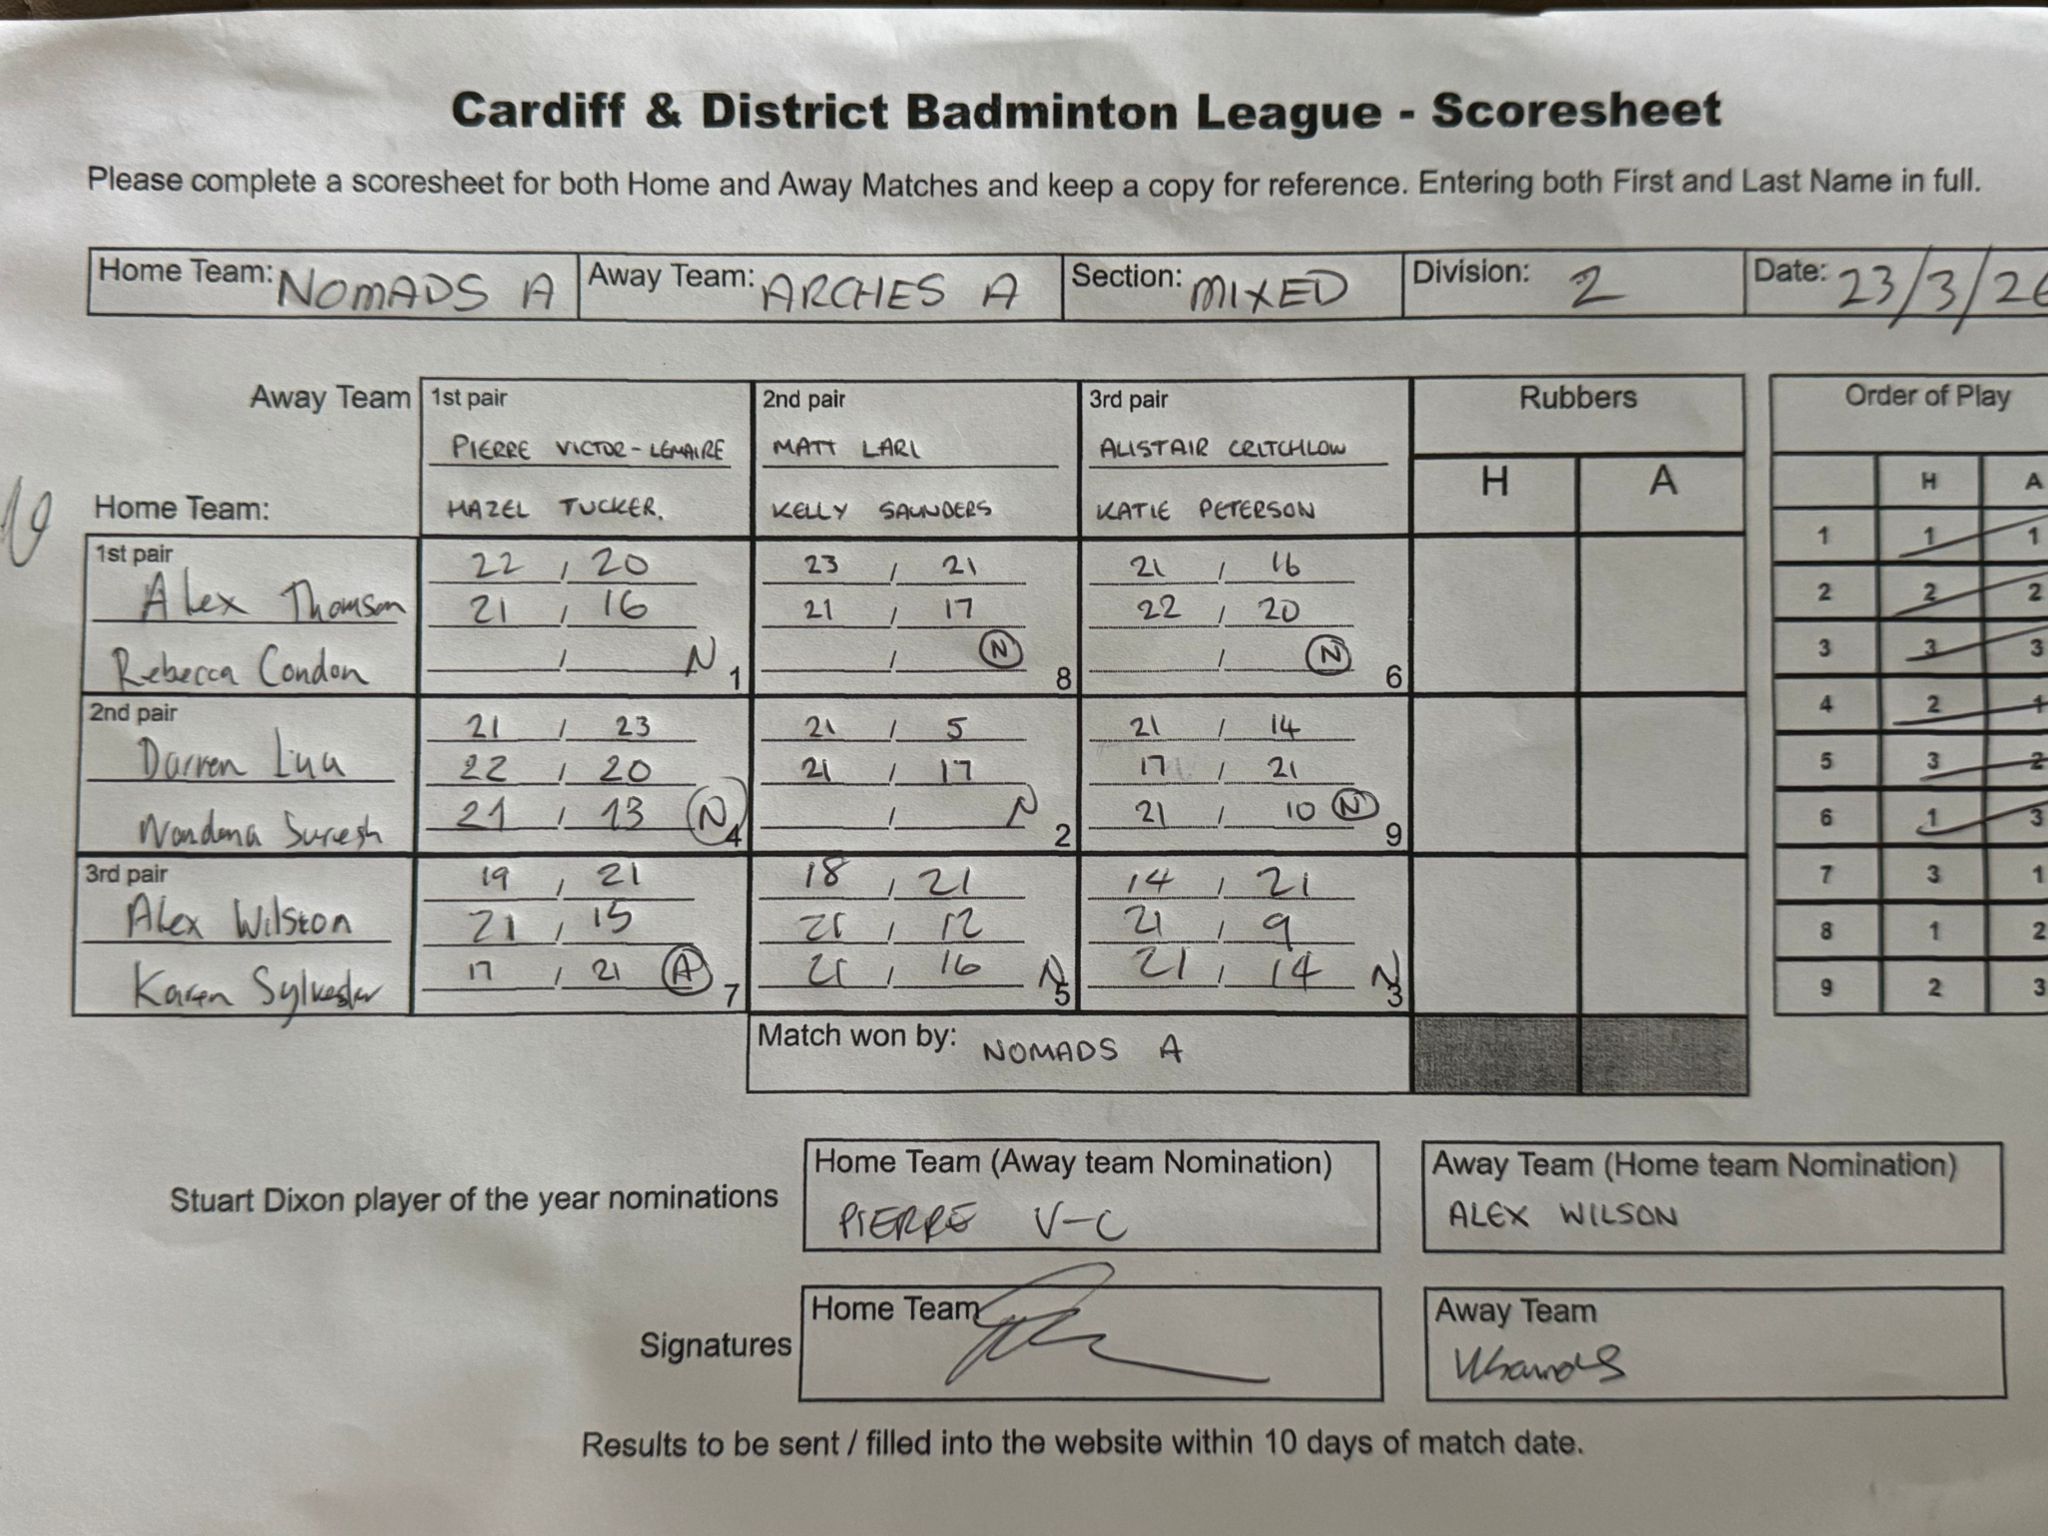 Cardiff & District Badminton League - Scoresheet
Please complete a scoresheet for both Home and Away Matches and keep a copy for reference. Entering both First and Last Name in full.
Home Team: NOMADS A Away Team: ARCHES A Section: MIXED Division: 2 Date: 23/3/26
Away Team 1st pair 2nd pair 3rd pair Rubbers Order of Play
PIERRE VICTOR-LEMAIRE MATT LARL ALISTAIR CRITCHLOW
H A H A
Home Team: HAZEL TUCKER. KELLY SAUNDERS KATIE PETERSON
1st pair 22 , 20 23 / 21 21 / 16 1 1 1
Alex Thomson 21 , 16 21 / 17 22 / 20 2 2 2
Rebecca Condon / N 1 / N 8 / N 6 3 3 3
2nd pair 21 / 23 21 / 5 21 / 14 4 2 1
Darren 22 , 20 21 / 17 17 , 21 5 3 2
Suresh 21 , 13 N 4 / N 2 21 , 10 N 9 6 1 3
3rd pair 19 , 21 18 , 21 14 , 21 7 3 1
Alex Wilston 21 , 15 21 / 12 21 , 9 8 1 2
Karen Sylvester 17 , 21 A 7 21 , 16 N 5 21 , 14 N 3 9 2 3
Match won by: NOMADS A
Stuart Dixon player of the year nominations
Home Team (Away team Nomination) Away Team (Home team Nomination)
PIERRE V-C ALEX WILSON
Signatures
Home Team Away Team
Results to be sent / filled into the website within 10 days of match date.